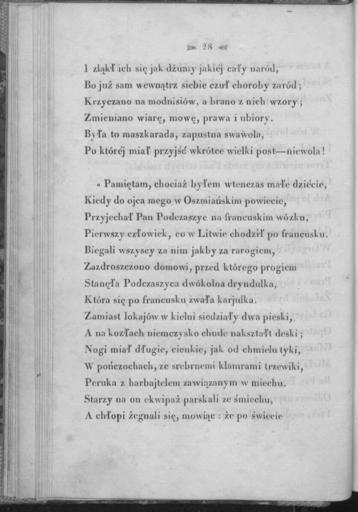 28
I zląkł ich się jak dżumy jakiéj cały naród,
Bo już sam wewnątrz siebie czuł choroby zaród ;
Krzyczano na modnisiów, a brano z nich wzory ;
Zmieniano wiarę, mowę, prawa i ubiory.
Była to maszkarada, zapustna swawola,
Po któréj miał przyjść wkrótce wielki post—niewola !
« Pamiętam, chociaż byłem wtenczas małe dziécie,
Kiedy do ojca mego w Oszmiańskim powiecie,
Przyjechał Pan Podczaszyc na francuskim wózku,
Pierwszy człowiek, co w Litwie chodził po francusku.
Biegali wszyscy za nim jakby za rarogiem,
Zazdroszczono domowi, przed którego progiem
Stanęła Podczaszyca dwókolna dryndulka,
Która się po francusku zwała karjulka.
Zamiast lokajów w kielni siedziały dwa pieski,
A na kozłach niemczysko chude nakształt deski ;
Nogi miał długie, cienkie, jak od chmielu tyki,
W pończochach, ze srebrnemi klamrami trzewiki,
Peruka z harbajtelem zawiązanym w miechu.
Starzy na on ekwipaż parskali ze śmiechu,
A chłopi żegnali się, mowiąc : że po świecie